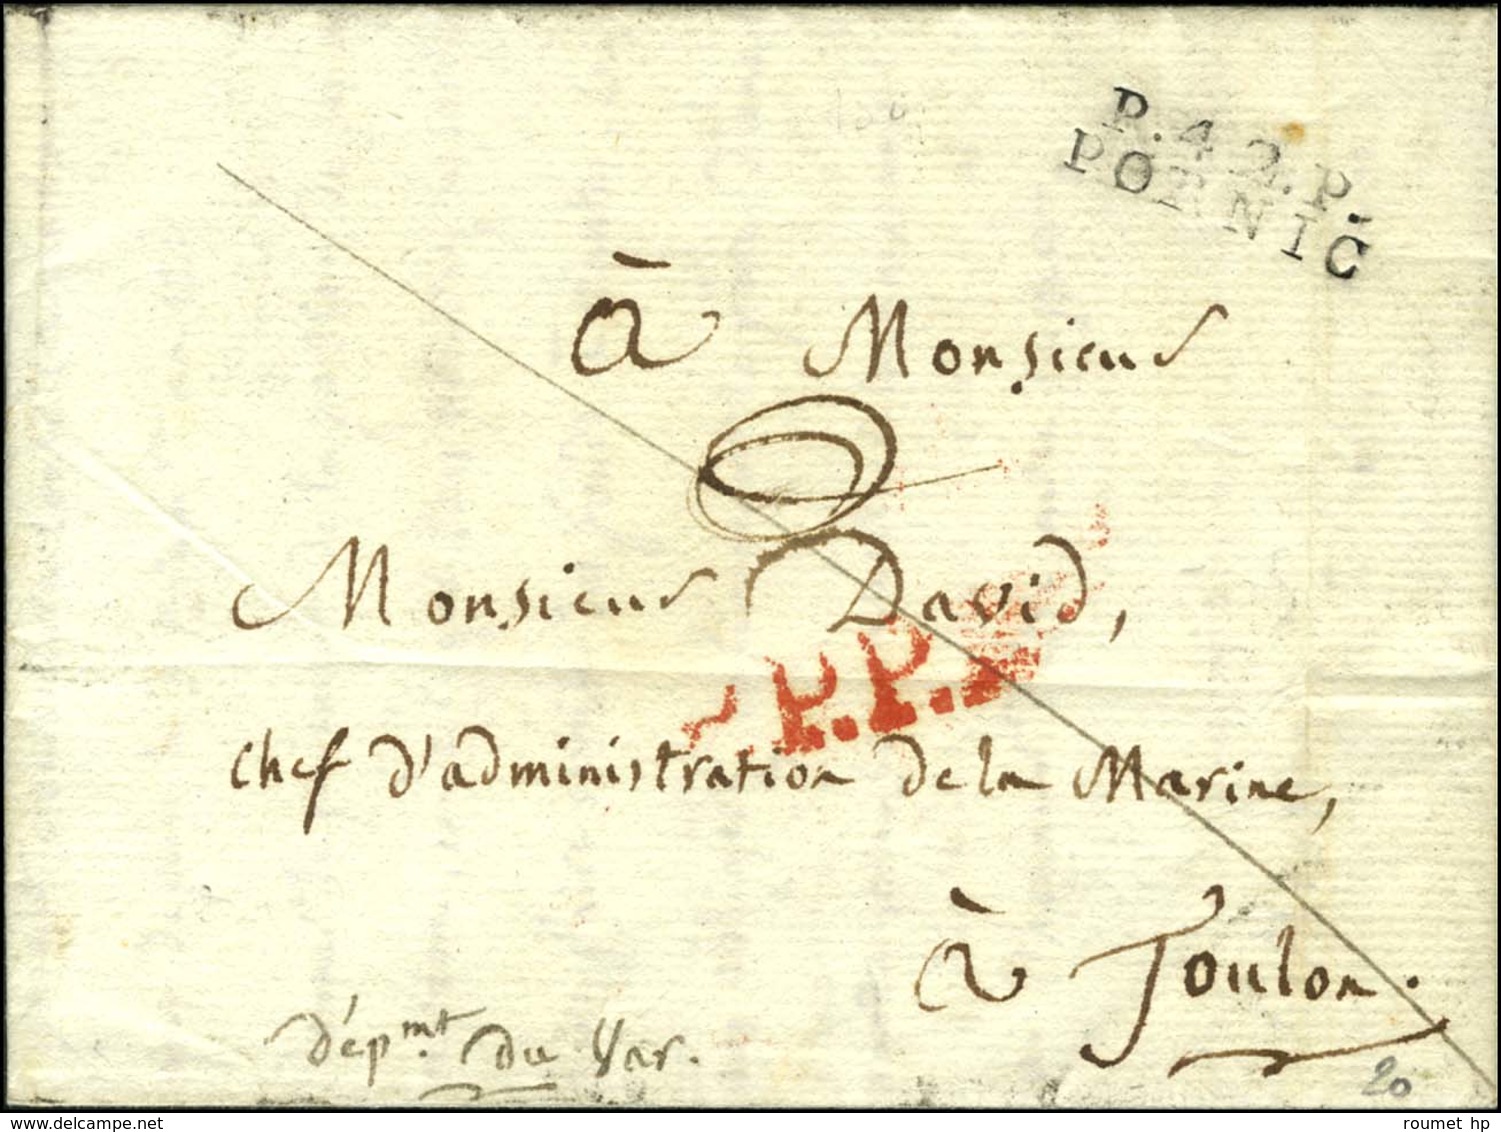 P.42.P.
PORNIC
à Monsieur
Monsieur David,
P.P.P.
chef d'administration de la Marine,
à Toulon.
Dép.mt du Var.
20
delcampe.net
roumet hp